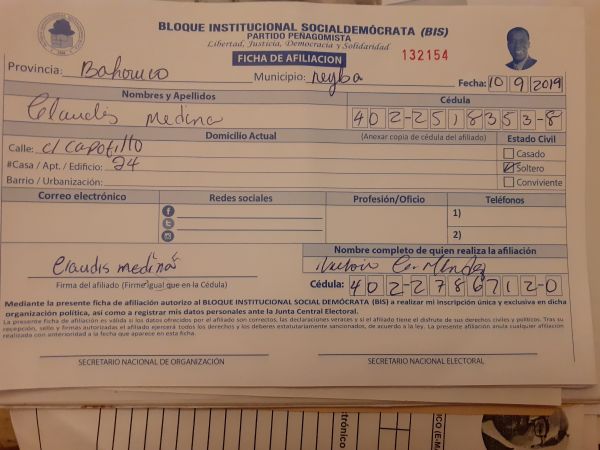 BLOQUE INSTITUCIONAL SOCIALDEMÓCRATA (BIS)
PARTIDO PEÑAGOMISTA
Libertad, Justicia, Democracia y Solidaridad
FICHA DE AFILIACION 132154
Provincia: Bahoruco Municipio: neyba Fecha: 10 9 2019
Nombres y Apellidos Cédula
Claudis medina 402-2518353-8
Domicilio Actual (Anexar copia de cédula del afiliado) Estado Civil
Calle: c/ Capotillo Casado
#Casa / Apt. / Edificio: 24 Soltero
Barrio / Urbanización: Conviviente
Correo electrónico Redes sociales Profesión/Oficio Teléfonos
1)
2)
Nombre completo de quien realiza la afiliación
Claudis medina
Firma del afiliado (Firme igual que en la Cédula) Cédula: 402-2786712-0
Mediante la presente ficha de afiliación autorizo al BLOQUE INSTITUCIONAL SOCIAL DEMÓCRATA (BIS) a realizar mi inscripción única y exclusiva en dicha
organización política, así como a registrar mis datos personales ante la Junta Central Electoral.
La presente ficha de afiliación es válida si los datos ofrecidos por el afiliado son correctos, las declaraciones veraces y si el afiliado tiene el disfrute de sus derechos civiles y políticos. Tras su
recepción, sello y firmas autorizadas el afiliado ejercerá todos los derechos y los deberes estatutariamente sancionados, de acuerdo a la ley. La presente afiliación anula cualquier afiliación
realizada con anterioridad a la fecha que aparece en esta ficha.
SECRETARIO NACIONAL DE ORGANIZACIÓN SECRETARIO NACIONAL ELECTORAL